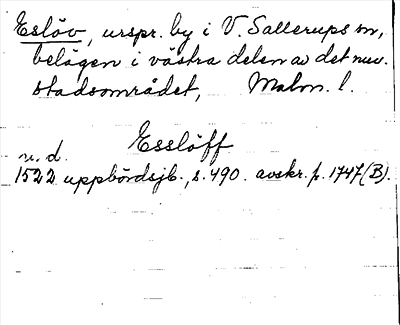 Eslöv, urspr. by i V. Sallerups sn,
belägen i västra delen av det nuv.
stadsområdet, Malm. l.
Esslöff
u. d.
1522 uppbördsjb., s. 490. avskr. f. 1747 (B).